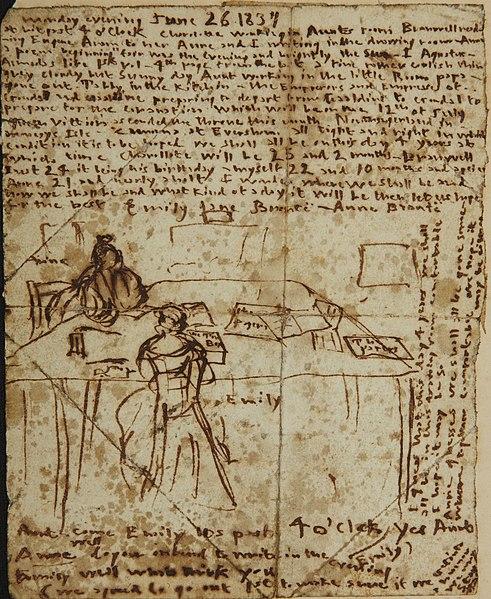 Monday evening June 26 1837
A bit past 4 o'clock Charlotte working in Aunts room Branwell reading
Eugene Aram to her Anne and I writing in the drawing room Anne
a poem beginning fair was the evening and brightly the sun I Agustus
Almedas life 1st vol 4th page from the last fine
cloudy but Sunny day Aunt working in the little Room papa
gone out. Tabby in the Kitchen the Emprerors and Empresses of
Gondal and Gaaldine preparing to depart from Gaaldine to Gondal to
prepare for the coranation which will be on the 12th of July
Queen Vittoria ascended the throne this month Northangerland in
Monceys Isle Zamorna at Eversham. all tight and right in which
condition it is to be hoped we shall all be on this day 4 years at
which time Charollote will be 25 and 2 months Branwell
just 24 it being his birthday myself 22 and 10 months and a peice
Anne 21 and nearly a half I wonder where we shall be and
how we shall be and what kind of a day it will be then let us hope
for the best
Emily Jane Brontë Anne Brontë
Anne
The
papers
The Tin
Box
Emily
I guess that this day 4 years we shall
all be in this drawing room comfortable
I hope it may be so
Anne guesses we shall all be gone somewhere
Aunt come Emily Its past 4 o'clock Yes Aunt
Anne well do you intend to write in the evening
Emily well what think you
(we agreed to go out 1st to make sure if we